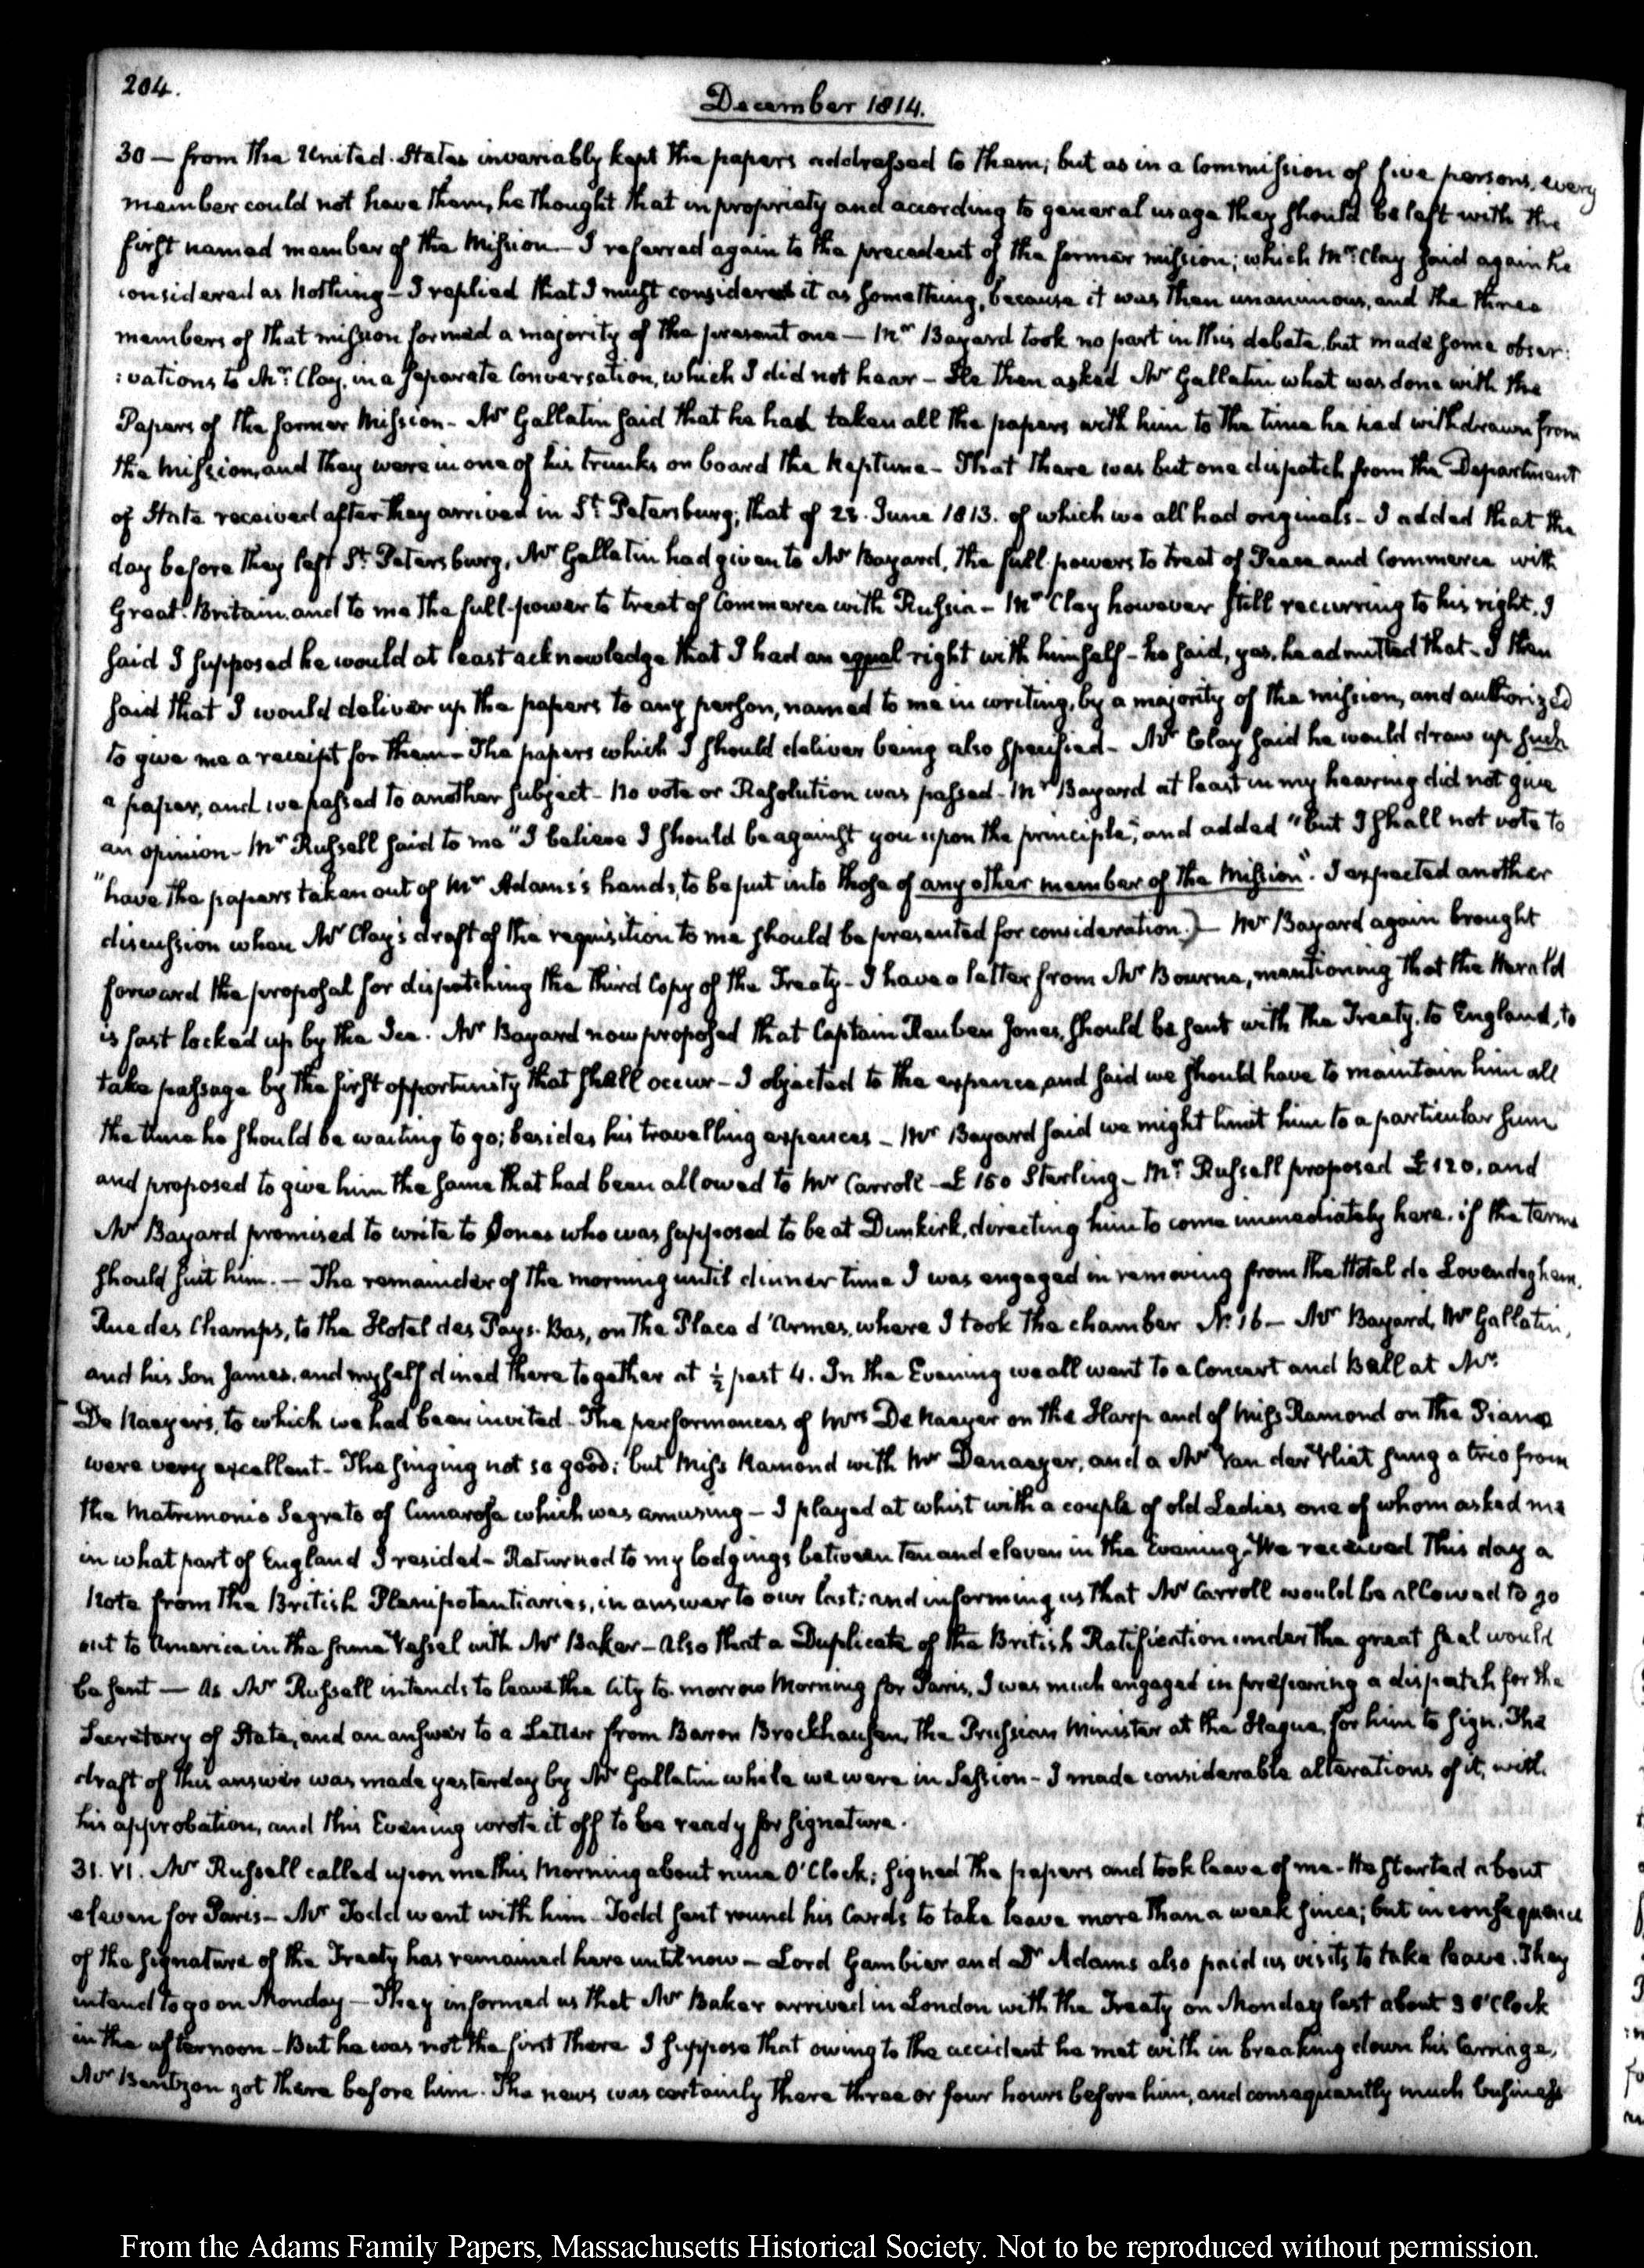 204.
December 1814.
30 — from the United States invariably kept the papers addressed to them; but as in a Commission of five persons, every
member could not have them, he thought that in propriety and according to general usage they should be left with the
first named member of the Mission — I referred again to the precedent of the former mission; which Mr. Clay said again he
considered as Nothing — I replied that I must considered it as something, because it was then unanimous, and the three
members of that mission formed a majority of the present one — Mr Bayard took no part in this debate, but made some obser:
:vations to Mr. Clay, in a separate Conversation, which I did not hear — He then asked Mr Gallatin what was done with the
Papers of the former Mission — Mr Gallatin said that he had taken all the papers with him to the time he had withdrawn from
the Mission, and they were in one of his trunks on board the Neptune — That there was but one dispatch from the Department
of State received after they arrived in St. Petersburg; that of 23. June 1813. of which we all had originals — I added that the
day before they left St. Petersburg, Mr Gallatin had given to Mr Bayard, the full powers to treat of Peace and Commerce with
Great-Britain, and to me the full-power to treat of Commerce with Russia — Mr Clay however still recurring to his right, I
said I supposed he would at least acknowledge that I had an equal right with himself — he said, yes, he admitted that — I then
said that I would deliver up the papers to any person, named to me in writing, by a majority of the mission, and authorized
to give me a receipt for them — The papers which I should deliver being also specified — Mr Clay said he would draw up such
a paper, and we passed to another subject — No vote or Resolution was passed — Mr Bayard at least in my hearing did not give
an opinion — Mr Russell said to me "I believe I should be against you upon the principle," and added "but I shall not vote to
"have the papers taken out of Mr Adams's hands, to be put into those of any other member of the Mission". I expected another
discussion when Mr Clay's draft of the requisition to me should be presented for consideration.) — Mr Bayard again brought
forward the proposal for dispatching the third Copy of the Treaty — I have a letter from Mr Bourne, mentioning that the Herald
is fast locked up by the Ice. Mr Bayard now proposed that Captain Reuben Jones, should be sent with the Treaty, to England, to
take passage by the first opportunity that shall occur — I objected to the expence, and said we should have to maintain him all
the time he should be waiting to go; besides his travelling expences — Mr Bayard said we might limit him to a particular sum
and proposed to give him the same that had been allowed to Mr Carroll — £150 Sterling — Mr. Russell proposed £120, and
Mr Bayard promised to write to Jones who was supposed to be at Dunkirk, directing him to come immediately here, if the terms
should suit him. — The remainder of the morning until dinner time I was engaged in removing from the Hotel de Lovendeghem,
Rue des Champs, to the Hotel des Pays-Bas, on the Place d'Armes, where I took the chamber N. 16 — Mr Bayard, Mr Gallatin,
and his Son James, and myself dined there together at ½ past 4. In the Evening we all went to a Concert and Ball at Mr.
De Naeyer's, to which we had been invited — The performances of Mrs De Naeyer on the Harp and of Miss Ramond on the Piano
were very excellent — The singing not so good; but Miss Ramond with Mr Denaeyer, and a Mr Van der Vliet sung a trio from
the Matrimonio Segreto of Cimarosa which was amusing — I played at whist with a couple of old Ladies one of whom asked me
in what part of England I resided — Returned to my lodgings between ten and eleven in the Evening. We received this day a
Note from the British Plenipotentiaries, in answer to our last; and informing us that Mr Carroll would be allowed to go
out to America in the same Vessel with Mr Baker — Also that a Duplicate of the British Ratification under the great seal would
be sent — As Mr Russell intends to leave the City to-morrow Morning for Paris, I was much engaged in preparing a dispatch for the
Secretary of State, and an answer to a Letter from Baron Brockhausen, the Prussian Minister at the Hague, for him to sign. The
draft of this answer was made yesterday by Mr Gallatin while we were in Session — I made considerable alterations of it, with
his approbation, and this Evening wrote it off to be ready for signature.
31. VI. Mr Russell called upon me this Morning about nine O'Clock; signed the papers and took leave of me — He started about
eleven for Paris — Mr Todd went with him — Todd sent round his Cards to take leave more than a week since; but in consequence
of the signature of the Treaty has remained here until now — Lord Gambier and Dr Adams also paid us visits to take leave. They
intend to go on Monday — They informed us that Mr Baker arrived in London with the Treaty on Monday last about 3 O'Clock
in the afternoon — But he was not the first there I suppose that owing to the accident he met with in breaking down his Carriage,
Mr Bentzon got there before him. The news was certainly there three or four hours before him, and consequently much business
From the Adams Family Papers, Massachusetts Historical Society. Not to be reproduced without permission.